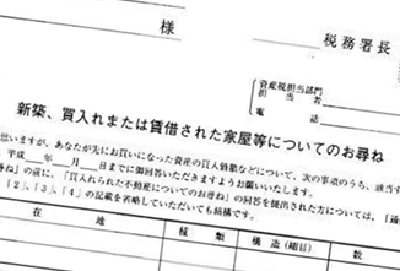 様
税務署長
資産税担当部門
担当者
電話
新築、買入れまたは賃借された家屋等についてのお尋ね
思いますが、あなたが先にお買いになった資産の買入価額などについて、次の事項のうち、該当す
平成 年 月 日までに御回答いただきますようお願いいたします。
ね」の前に、「買入れられた不動産についてのお尋ね」の回答を提出された方については、
〔2〕、〔3〕、〔4〕の記載を省略していただいても結構です。
所在地 種類 構造(細目) 数